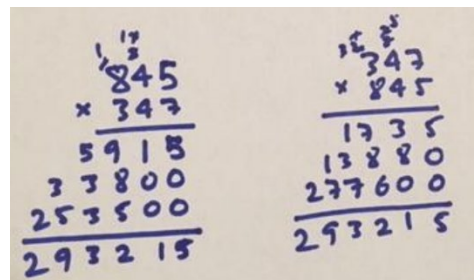 845
× 347
5915
33800
253500
293215
347
× 845
1735
13880
277600
293215